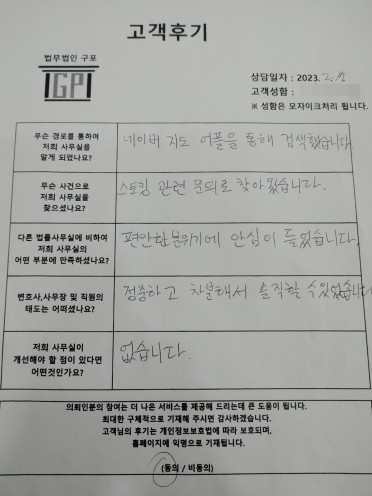 고객후기
법무법인 구포
GP
상담일자 : 2023. 2.
고객성함 :
※ 성함은 모자이크처리 됩니다.
무슨 경로를 통하여
저희 사무실을
알게 되었나요?
네이버 지도 어플을 통해 검색했습니다.
무슨 사건으로
저희 사무실을
찾으셨나요?
스토킹 관련 문의로 찾아왔습니다.
다른 법률사무실에 비하여
저희 사무실의
어떤 부분에 만족하셨나요?
편안한 분위기에 안심이 들었습니다.
변호사,사무장 및 직원의
태도는 어떠셨나요?
정중하고 차분해서 솔직할 수 있었습니다
저희 사무실이
개선해야 할 점이 있다면
어떤것인가요?
없습니다.
의뢰인분의 참여는 더 나은 서비스를 제공해 드리는데 큰 도움이 됩니다.
최대한 구체적으로 기재해 주시면 감사하겠습니다.
고객님의 후기는 개인정보보호법에 따라 보호되며,
홈페이지에 익명으로 기재됩니다.
(동의 / 비동의)